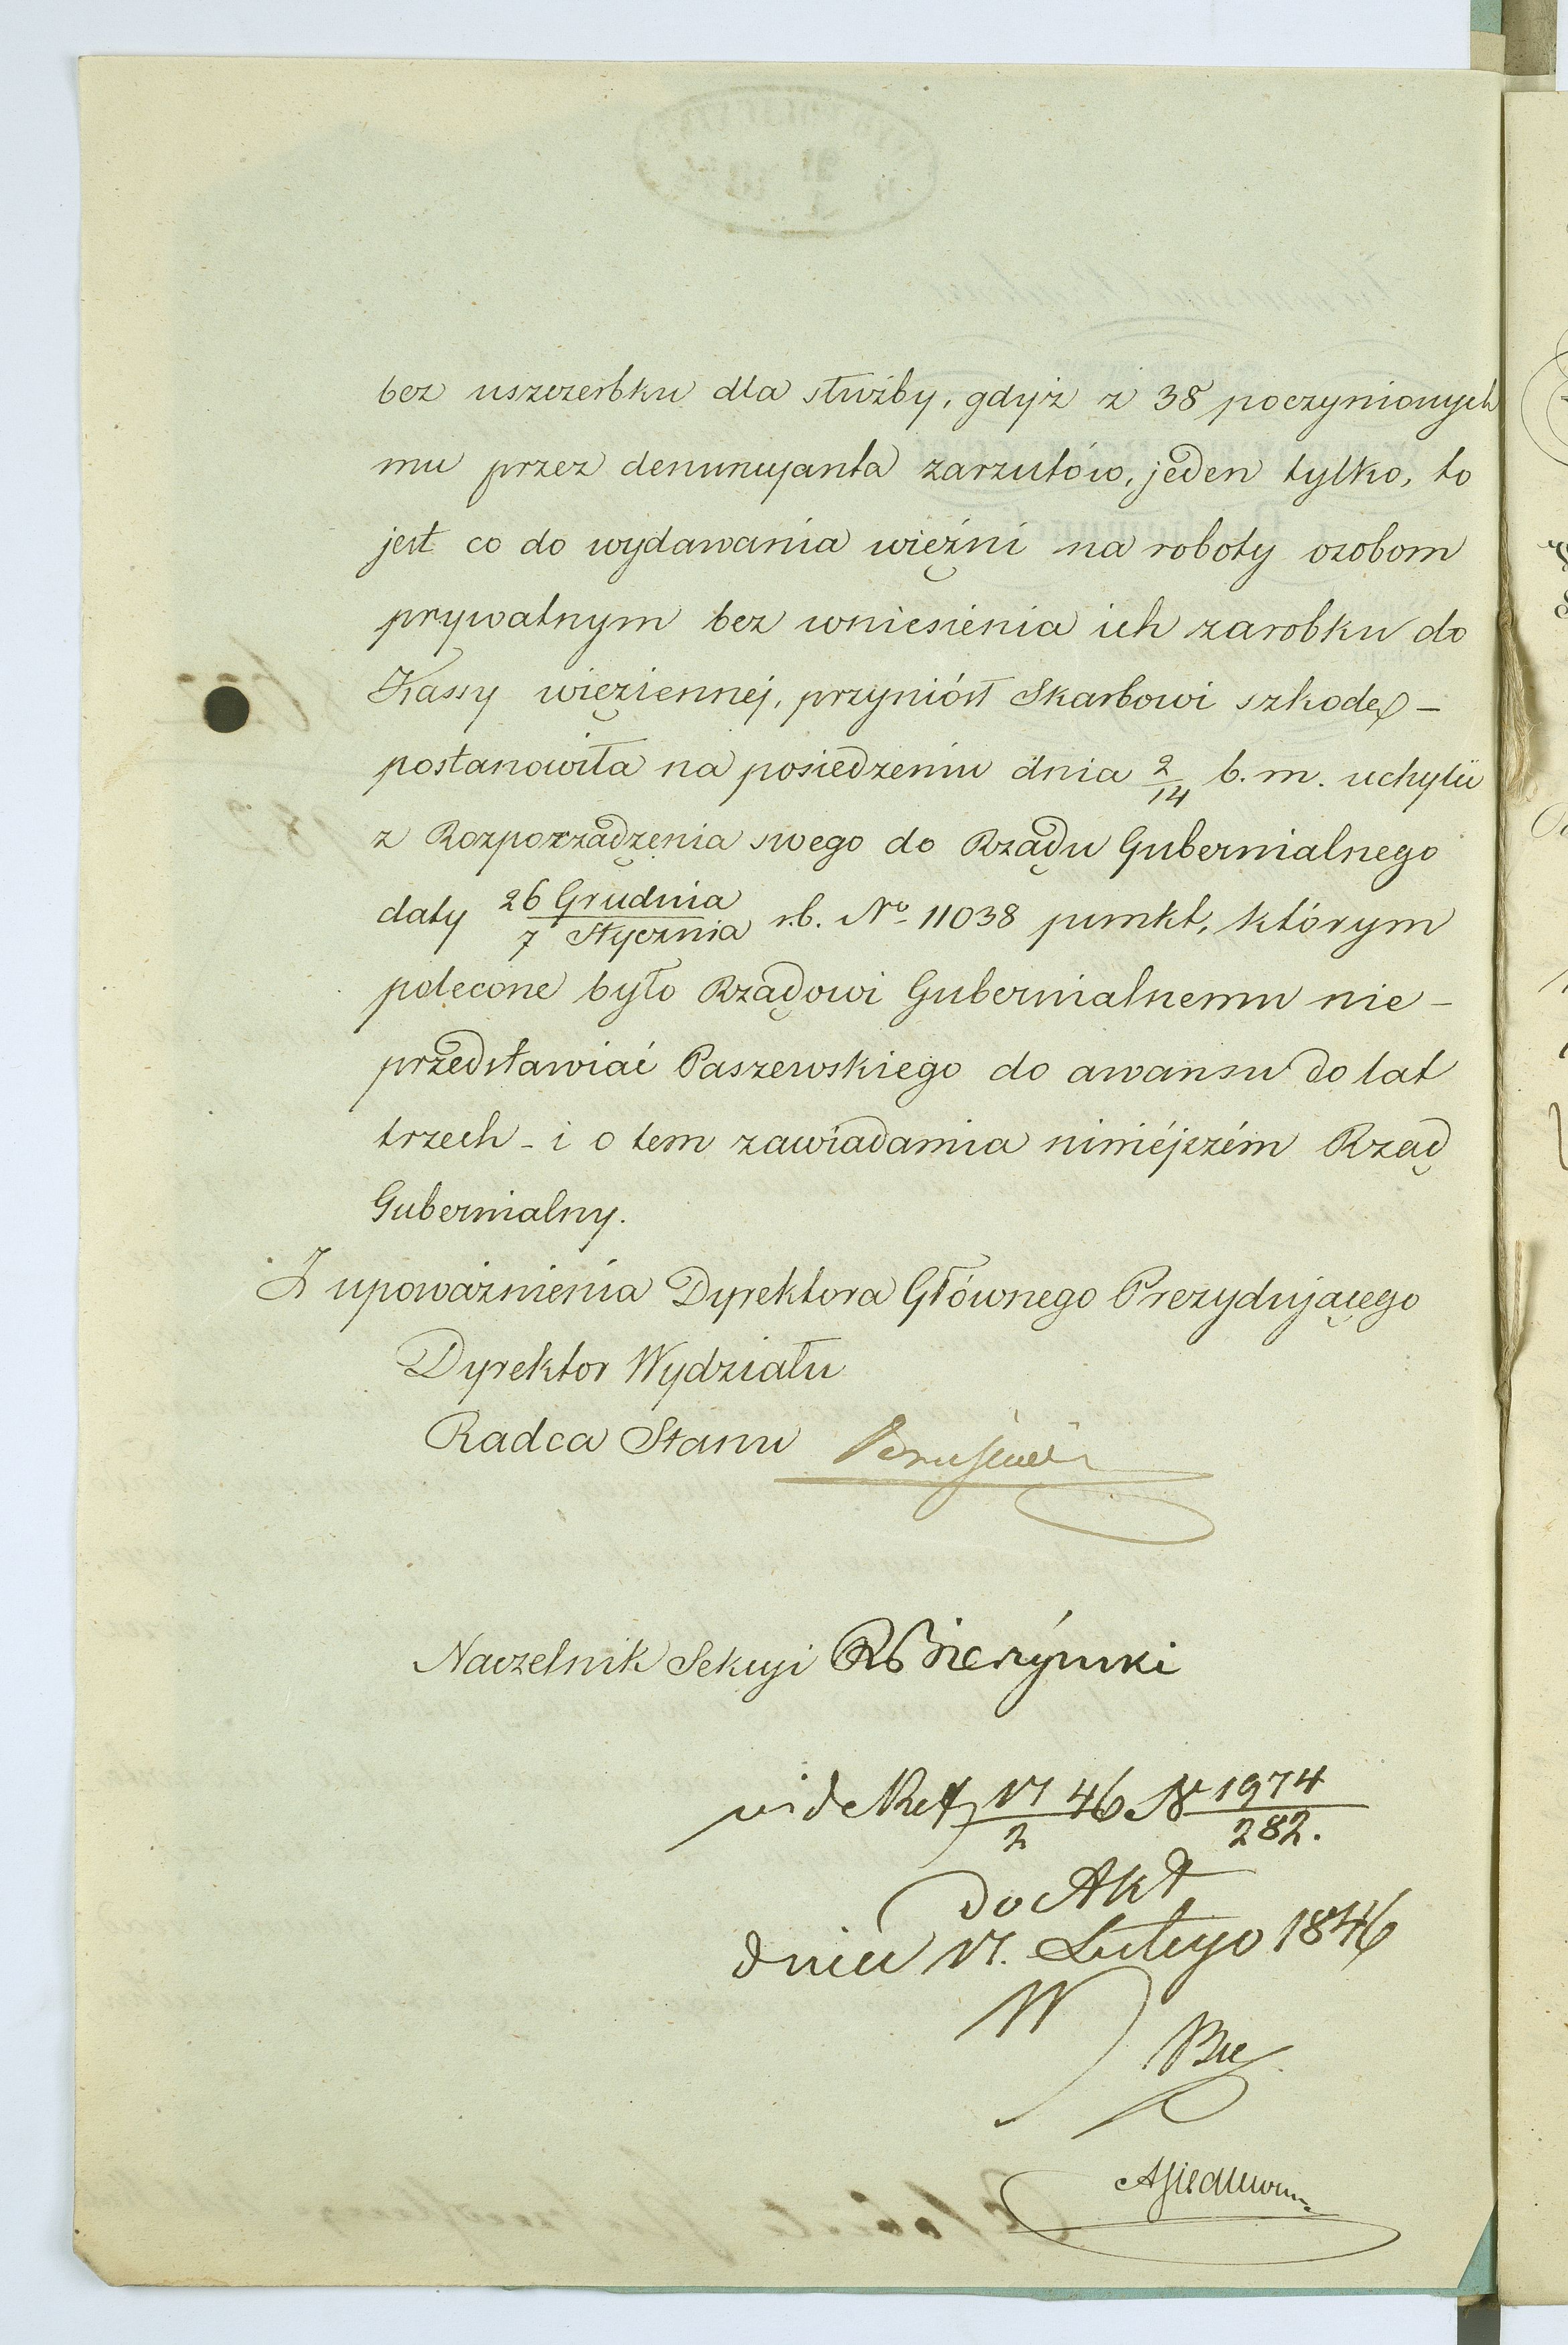 bez uszczerbku dla służby, gdyż z 38 poczynionych
mu przez denuncyanta zarzutów, jeden tylko, to
jest co do wydawania więźni na roboty osobom
prywatnym bez wniesienia ich zarobku do
Kassy więziennéj, przyniósł Skarbowi szkodę –
postanowiła na posiedzeniu dnia 2/14 b. m. uchylić
z Rozporządzenia swego do Rządu Gubernialnego
daty 26 Grudnia/7 Stycznia r.b. No 11038 punkt, którym
polecone było Rządowi Gubernialnemu nie –
przedstawiać Paszewskiego do awansu do lat
trzech – i o tem zawiadamia niniéjszém Rząd
Gubernialny.
Z upoważnienia Dyrektora Głównego Prezydującego
Dyrektor Wydziału
Radca Stanu
Naczelnik Sekcyi
vide 17/2 46 N 1974/282.
do Akt
dnia 17. Lutego 1846